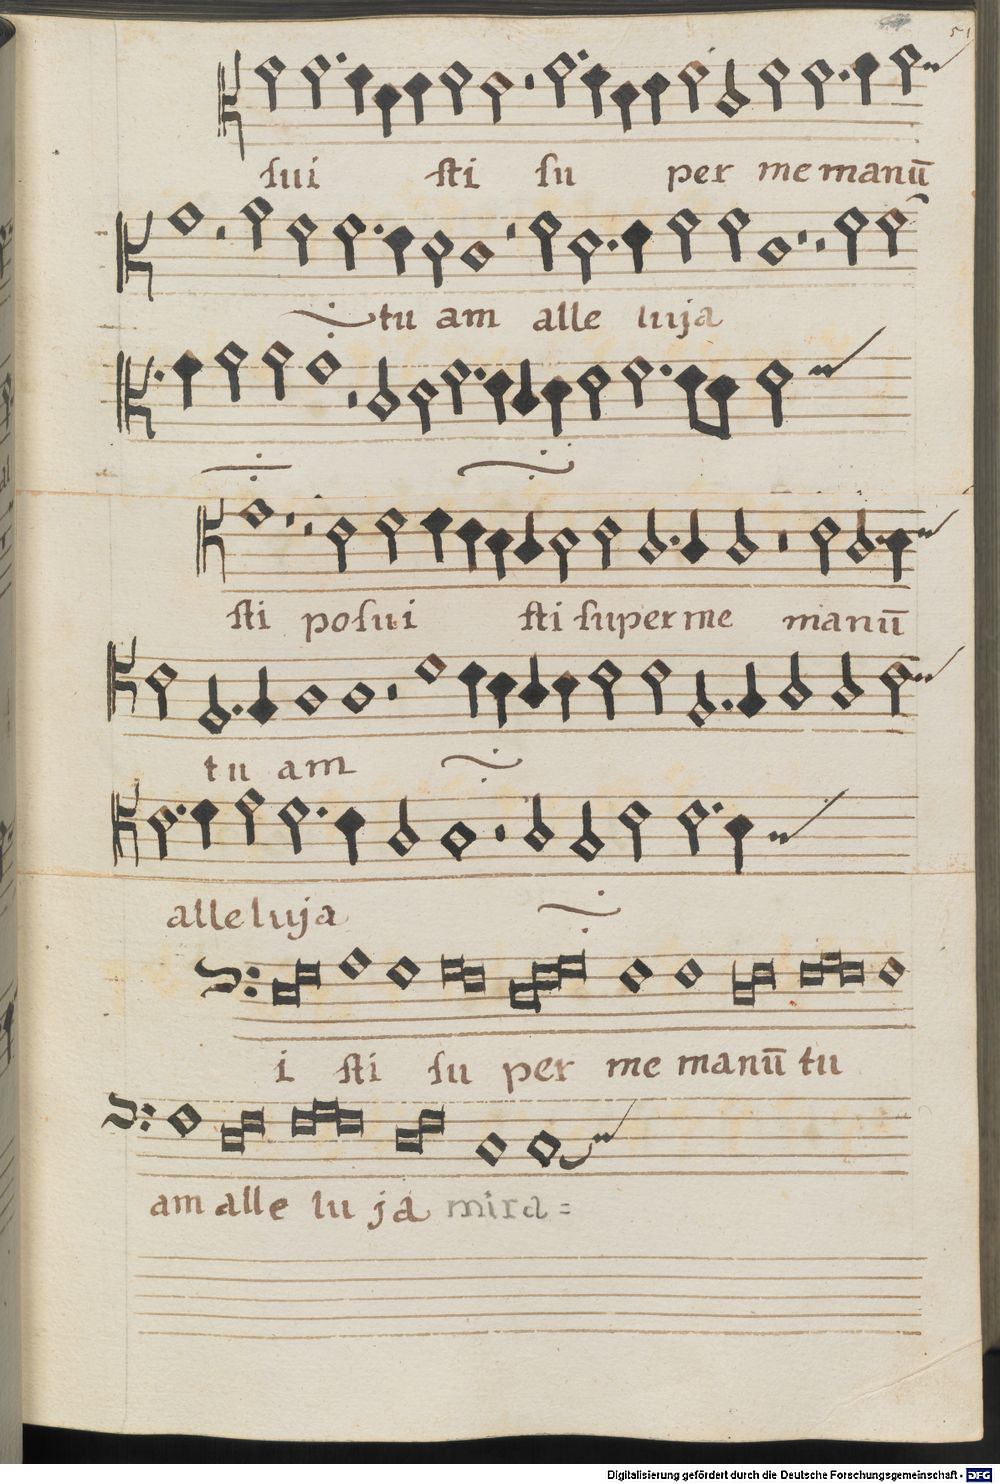 51
sui sti su per me manū
tu am alle luja
sti posui sti super me manū
tu am
alleluja
i sti su per me manū tu
am alle lu ja mira=
Digitalisierung gefördert durch die Deutsche Forschungsgemeinschaft - DFG